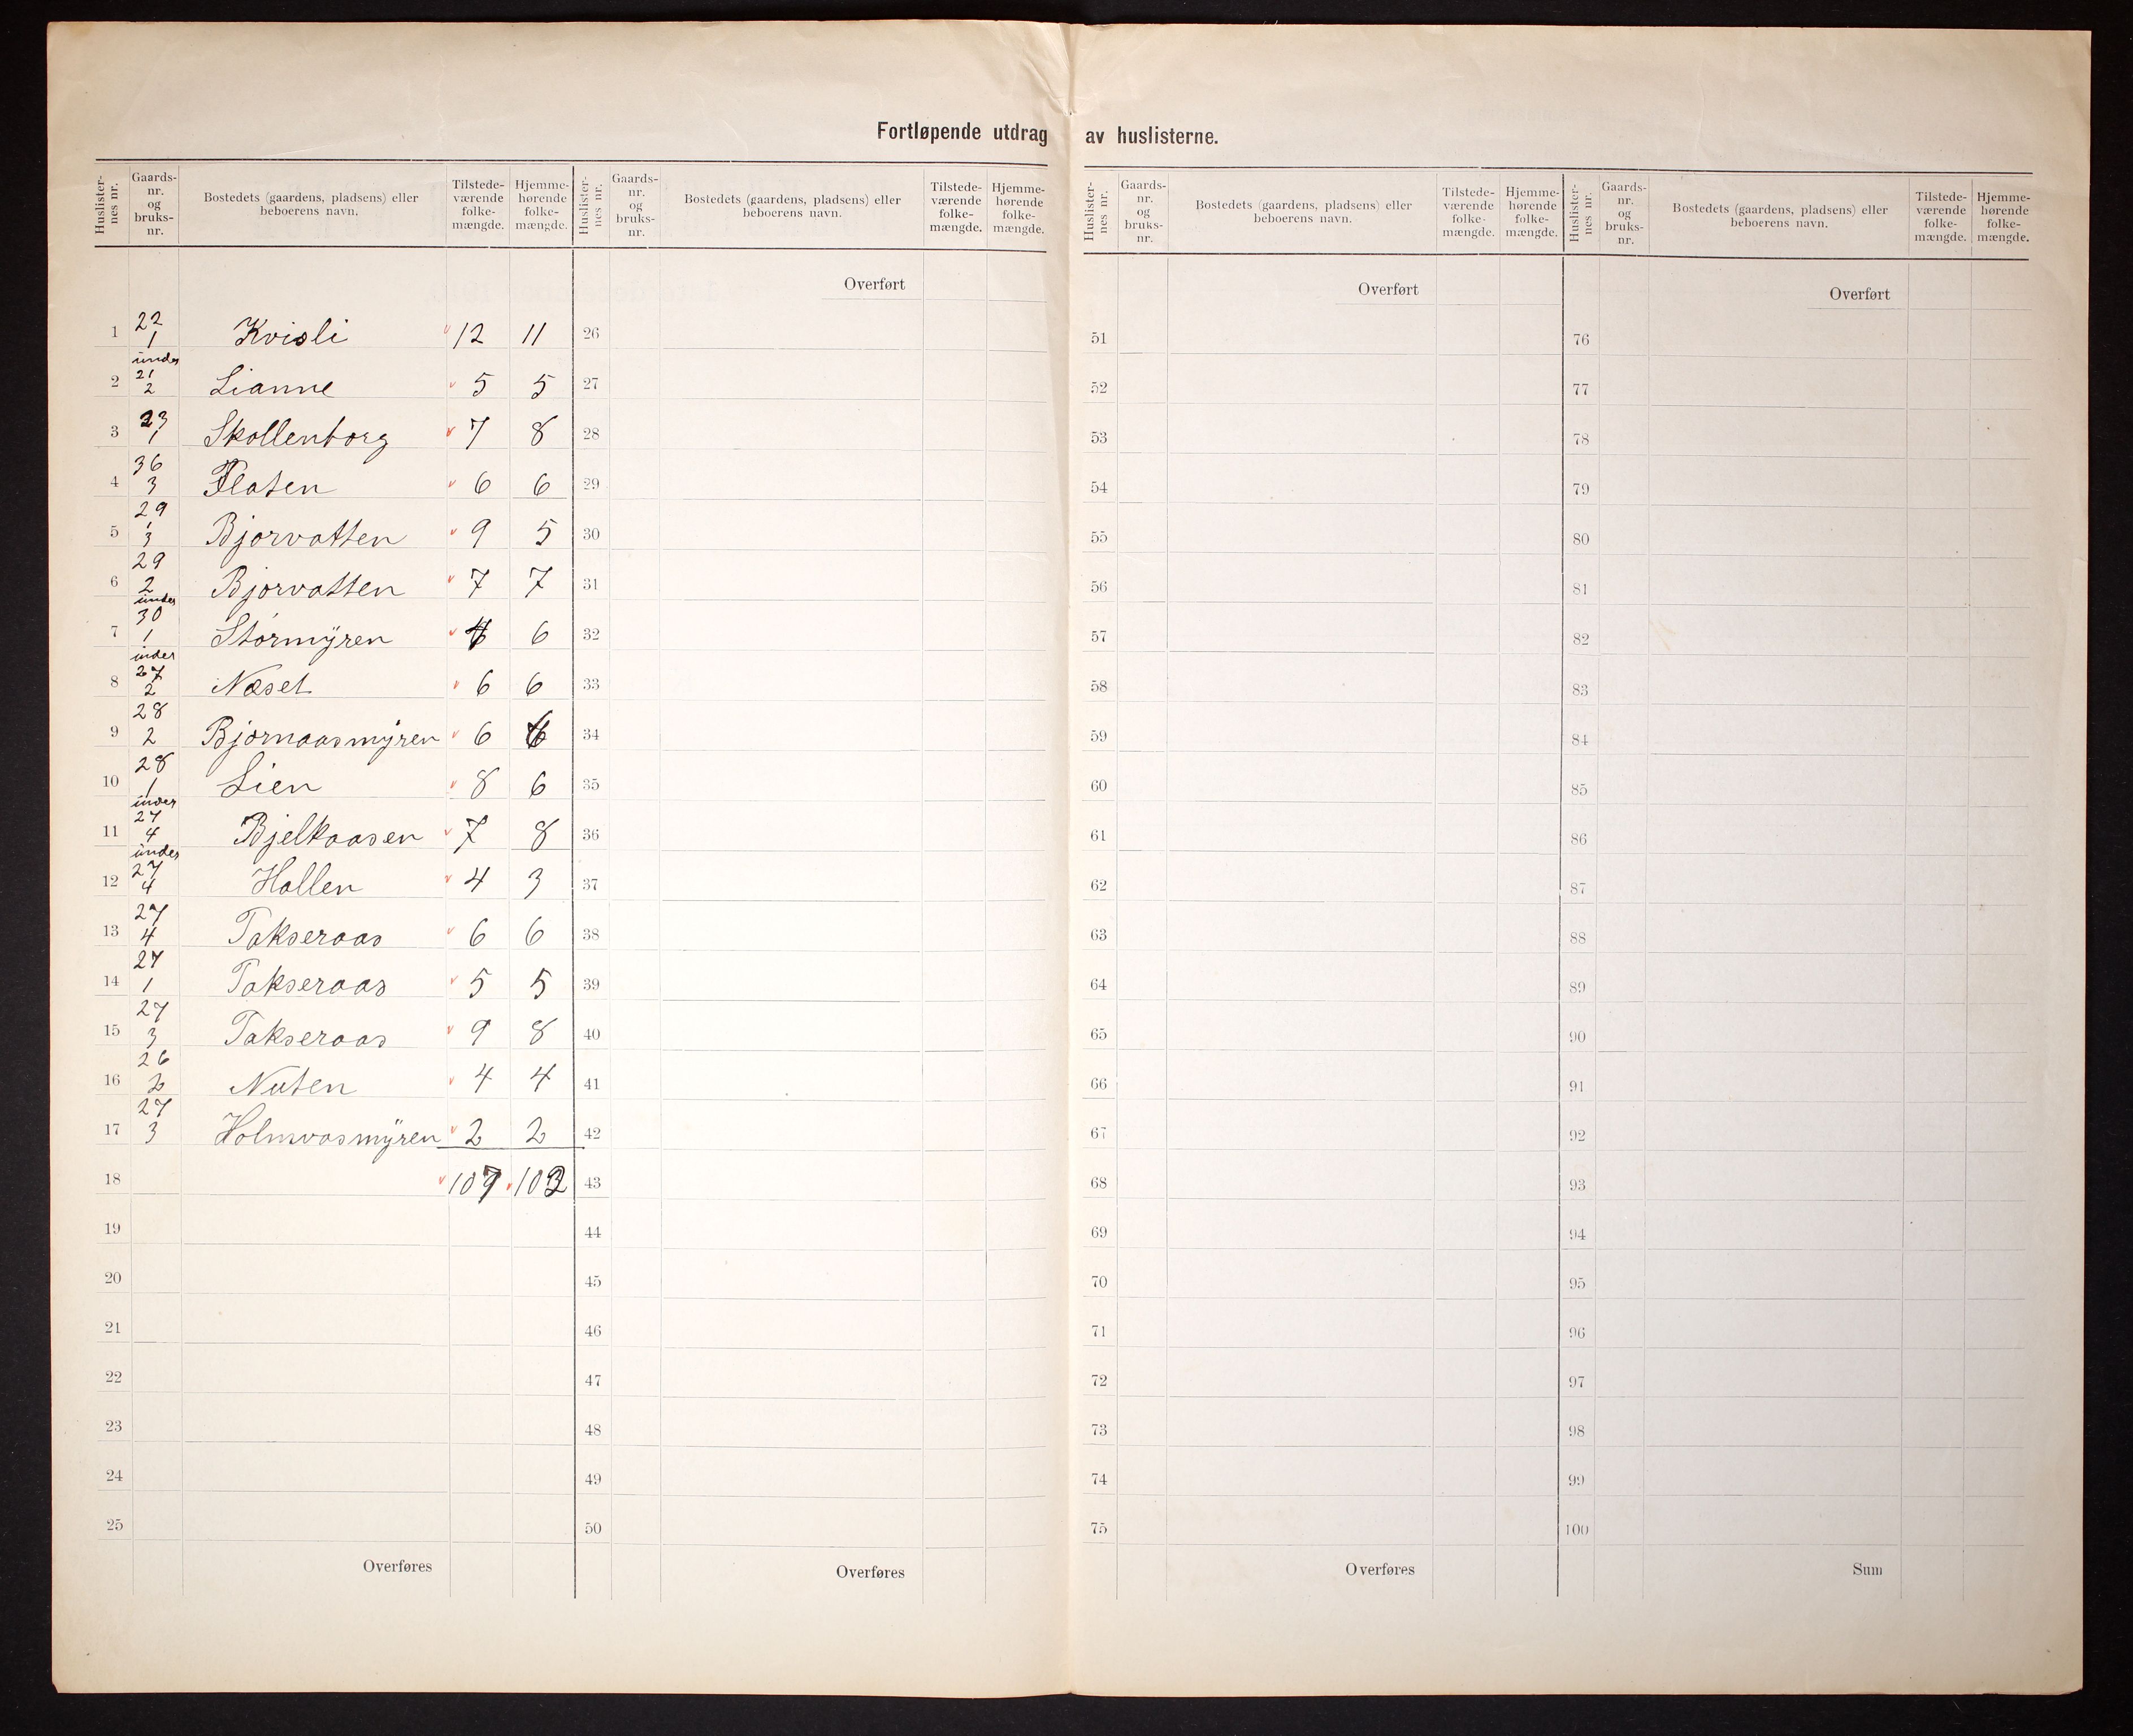 Fortløpende utdrag av huslisterne.
Huslister-nes nr. Gaards-nr. og bruks-nr. Bostedets (gaardens, pladsens) eller beboerens navn. Tilstede-værende folke-mængde. Hjemme-hørende folke-mængde. Huslister-nes nr. Gaards-nr. og bruks-nr. Bostedets (gaardens, pladsens) eller beboerens navn. Tilstede-værende folke-mængde. Hjemme-hørende folke-mængde. Huslister-nes nr. Gaards-nr. og bruks-nr. Bostedets (gaardens, pladsens) eller beboerens navn. Tilstede-værende folke-mængde. Hjemme-hørende folke-mængde. Huslister-nes nr. Gaards-nr. og bruks-nr. Bostedets (gaardens, pladsens) eller beboerens navn. Tilstede-værende folke-mængde. Hjemme-hørende folke-mængde.
Overført Overført Overført
1 22 1 Kvisli 12 11 26 51 76
2 under 21 2 Lianne 5 5 27 52 77
3 23 1 Skollenborg 7 8 28 53 78
4 36 3 Flaten 6 6 29 54 79
5 29 1 3 Bjorvatten 9 5 30 55 80
6 29 2 Bjorvatten 7 7 31 56 81
7 under 30 1 Stormÿren 6 32 57 82
8 under 27 2 Næset 6 6 33 58 83
9 28 2 Bjornaasmÿren 6 6 34 59 84
10 28 1 Lien 8 6 35 60 85
11 under 27 4 Bjelkaasen 7 8 36 61 86
12 under 27 4 Hallen 4 3 37 62 87
13 27 4 Takseraas 6 6 38 63 88
14 27 1 Takseraas 5 5 39 64 89
15 27 3 Takseraas 9 8 40 65 90
16 26 2 Nuten 4 4 41 66 91
17 27 3 Holmvasmÿren 2 2 42 67 92
18 109 102 43 68 93
19 44 69 94
20 45 70 95
21 46 71 96
22 47 72 97
23 48 73 98
24 49 74 99
25 50 75 100
Overføres Overføres Overføres Sum